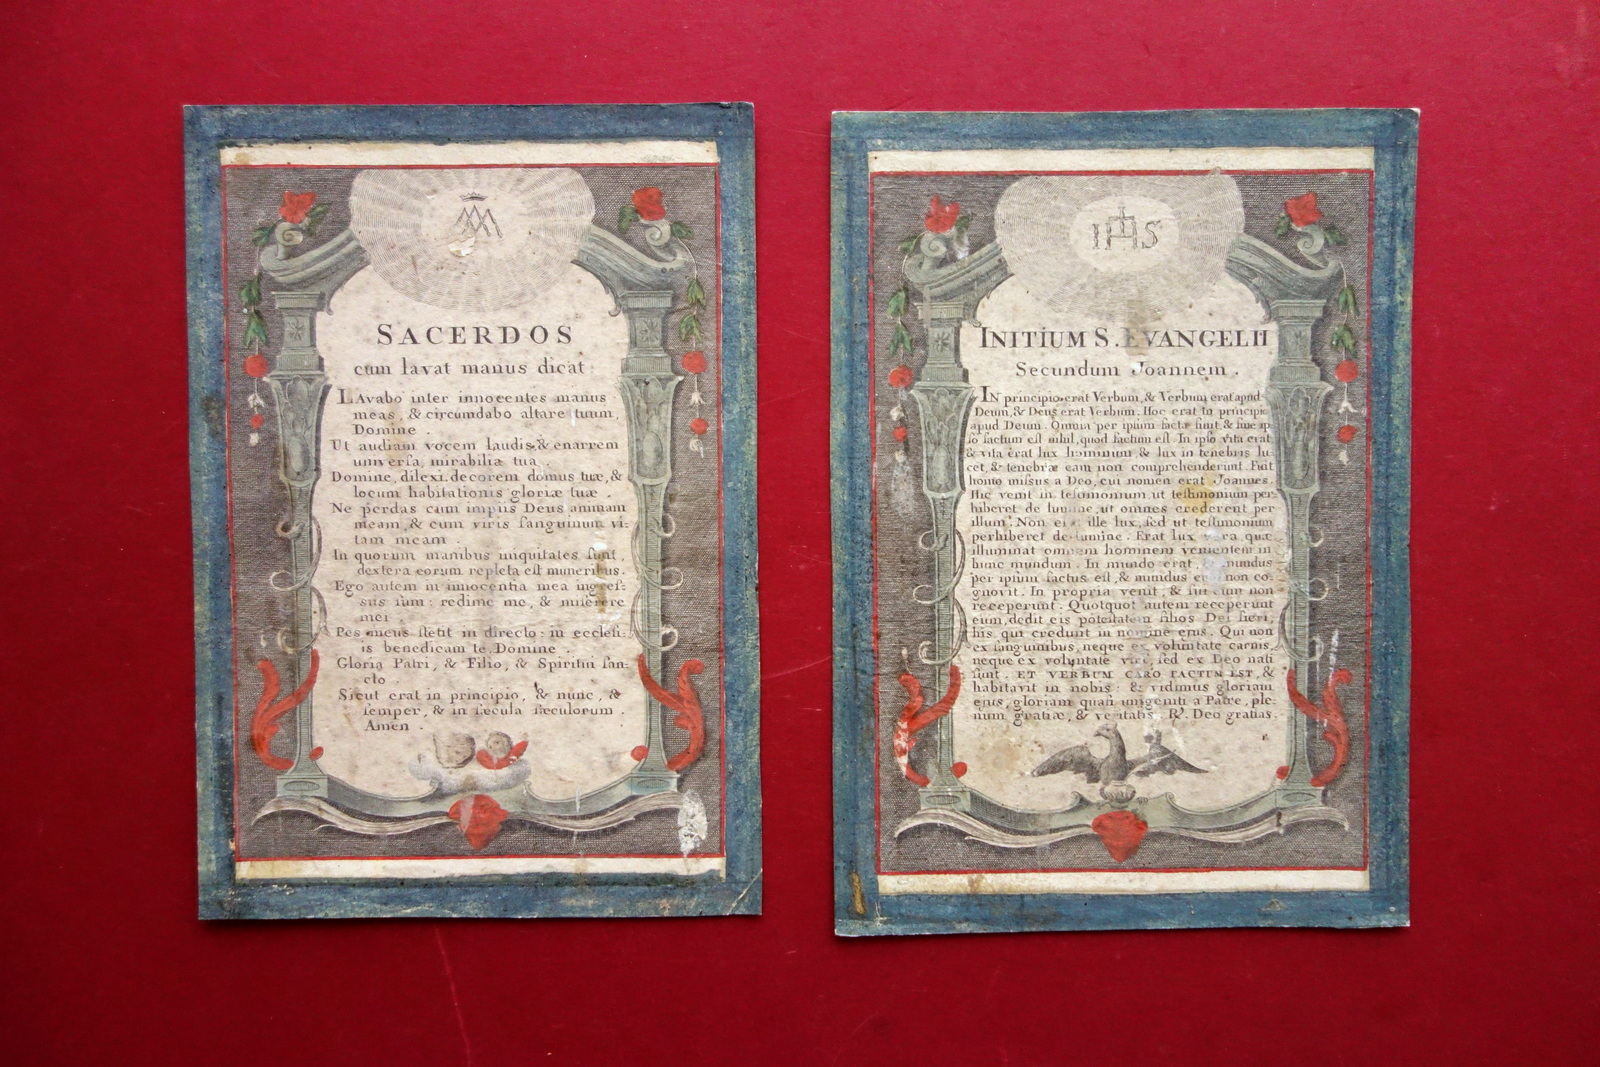 SACERDOS
cum lavat manus dicat
LAvabo inter innocentes manus
meas, & circumdabo altare tuum,
Domine .
Ut audiam vocem laudis, & enarrem
universa, mirabilia tua .
Domine, dilexi decorem domus tuæ, &
locum habitationis gloriæ tuæ .
Ne perdas cum impiis Deus animam
meam, & cum viris sanguinum vi-
tam meam .
In quorum manibus iniquitates sunt,
dextera eorum repleta est muneribus.
Ego autem in innocentia mea ingres-
sus sum: redime me, & miserere
mei .
Pes meus stetit in directo: in ecclesi-
is benedicam te, Domine .
Gloria Patri, & Filio, & Spiritui san-
cto .
Sicut erat in principio, & nunc, &
semper, & in sæcula sæculorum .
Amen .
IHS
INITIUM S. EVANGELII
Secundum Joannem .
IN principio erat Verbum, & Verbum erat apud
Deum, & Deus erat Verbum. Hoc erat in principio
apud Deum. Omnia per ipsum factæ sunt & sine ip-
so factum est nihil, quod factum est. In ipso vita erat
& vita erat lux hominum, & lux in tenebris lu-
cet, & tenebræ eam non comprehenderunt. Fuit
homo missus a Deo, cui nomen erat Joannes.
Hic venit in testimonium ut testimonium per-
hiberet de lumine, ut omnes crederent per
illum. Non erat ille lux, sed ut testimonium
perhiberet de lumine. Erat lux vera quæ
illuminat omnem hominem venientem in
hunc mundum. In mundo erat, & mundus
per ipsum factus est, & mundus eum non co-
gnovit. In propria venit, & sui eum non
receperunt. Quotquot autem receperunt
eum, dedit eis potestatem filios Dei fieri,
his qui credunt in nomine ejus. Qui non
ex sanguinibus, neque ex voluntate carnis,
neque ex voluntate viri, sed ex Deo nati
sunt. ET VERBUM CARO FACTUM EST, &
habitavit in nobis: & vidimus gloriam
ejus, gloriam quasi unigeniti a Patre, ple-
num gratiæ, & veritatis. R. Deo gratias.